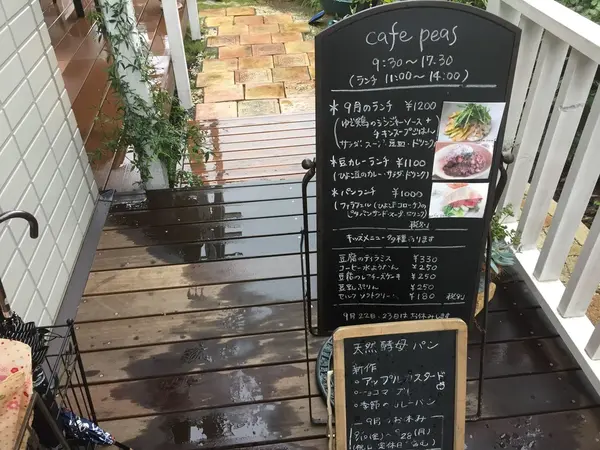 cafe peas
9:30〜17:30
(ランチ 11:00〜14:00)
*9月のランチ ¥1200
(ゆで鶏のジンジャーソース+
チキンスープごはん
サラダ・スープ・豆皿・ドリンク)
*豆カレーランチ ¥1100
(ひよこ豆のカレー・サラダ・ドリンク)
*パンランチ ¥1000
(ファラフェル(ひよこ豆コロッケ)の
ピタパンサンド・スープ・ドリンク)
税込み
キッズメニュー多種あります
豆腐のティラミス ¥330
コーヒー水ようかん ¥250
豆腐のレアチーズケーキ ¥250
豆乳ぷりん ¥250
セルフソフトクリーム ¥180 税込み
9月22日、23日はお休みします
天然酵母パン
新作
○アップルカスタード
○季節のカレーパン
9月のお休み
28(月)